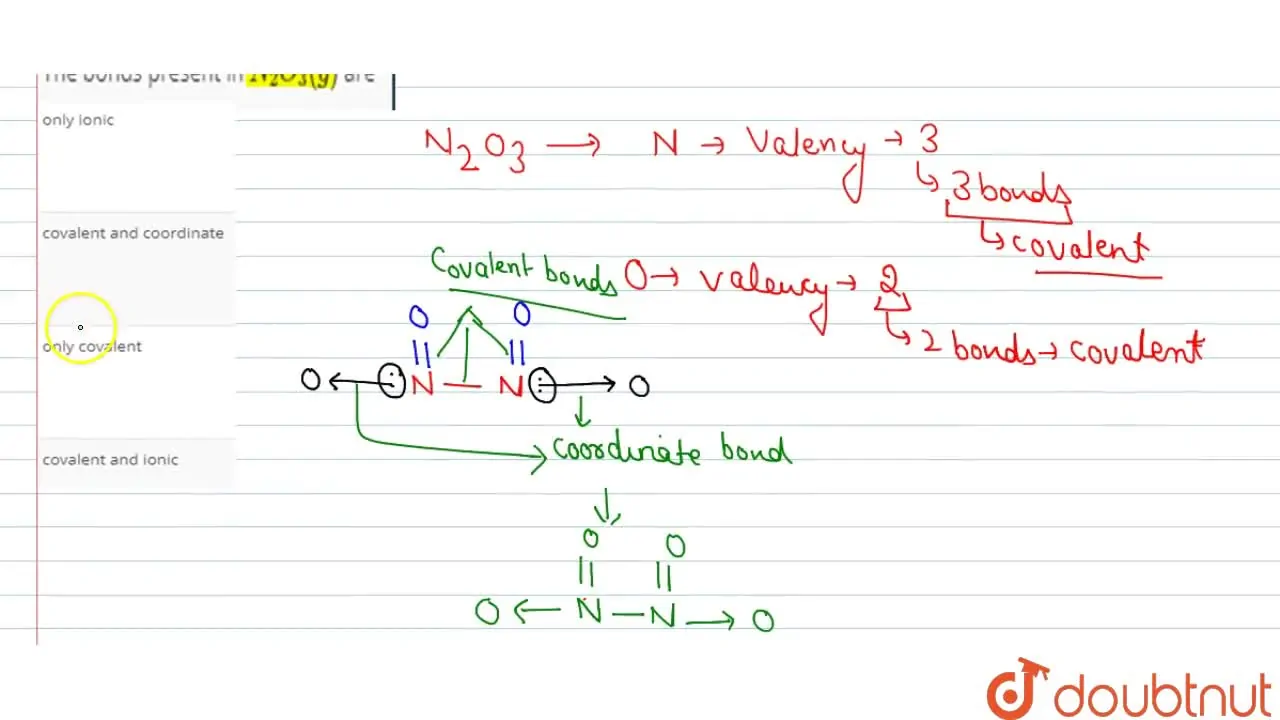 The bonds present in N₂O₃(g) are
only ionic
covalent and coordinate
only covalent
covalent and ionic
N₂O₃ → N → Valency → 3
↳ 3 bonds
↳ covalent
Covalent bonds
O → valency → 2
↳ 2 bonds → covalent
O O
|| ||
O ← : N — N : → O
↓
coordinate bond
↓
O O
|| ||
O ← N — N → O
doubtnut